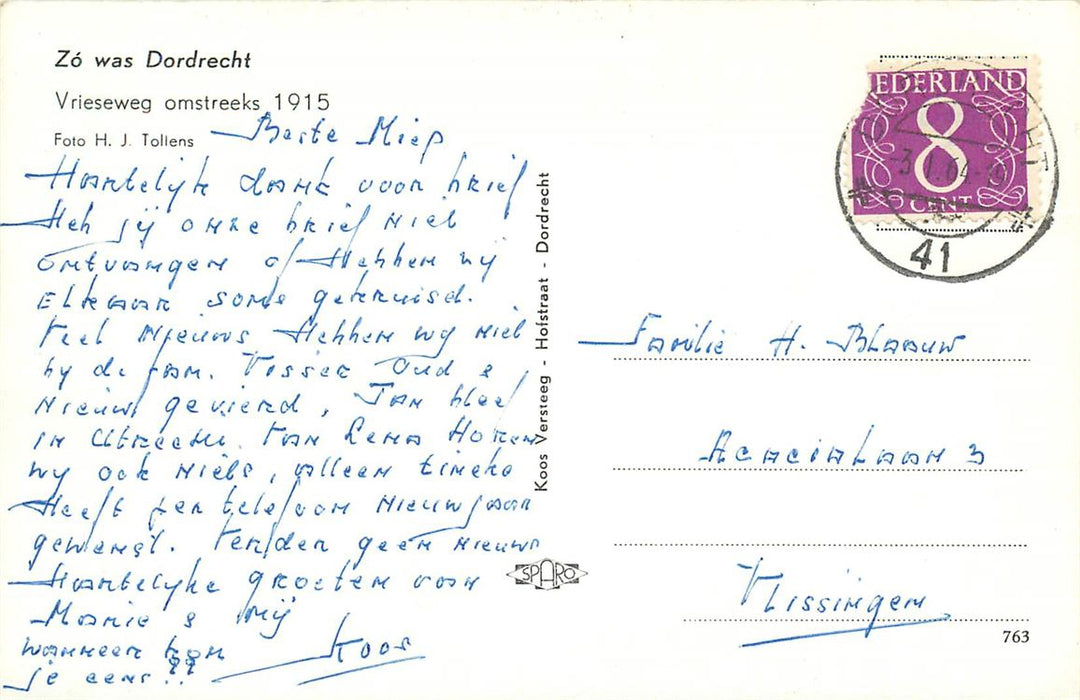 Zó was Dordrecht
Vrieseweg omstreeks 1915
Foto H. J. Tollens
Beste Miep
Hartelijk dank voor brief
Heb jij onze brief niet
ontvangen of Hebben wij
Elkaar soms gekruisd.
Veel Nieuws Hebben wy niet
by de fam. Visser Oud &
Nieuw gevierd, Jan bleef
in Utrecht. Van Lena Horen
wy ook niets, alleen Tineke
Heeft per telefoon Nieuwjaar
gewenst. Verder geen nieuws
Hartelyke groeten van
Marie & mij
wanneer kom Koos
je eens ??
Koos Versteeg - Hofstraat - Dordrecht
SPARO
NEDERLAND
8
CENT
41
Familie H. Blaauw
Acacialaan 3
Vlissingen
763